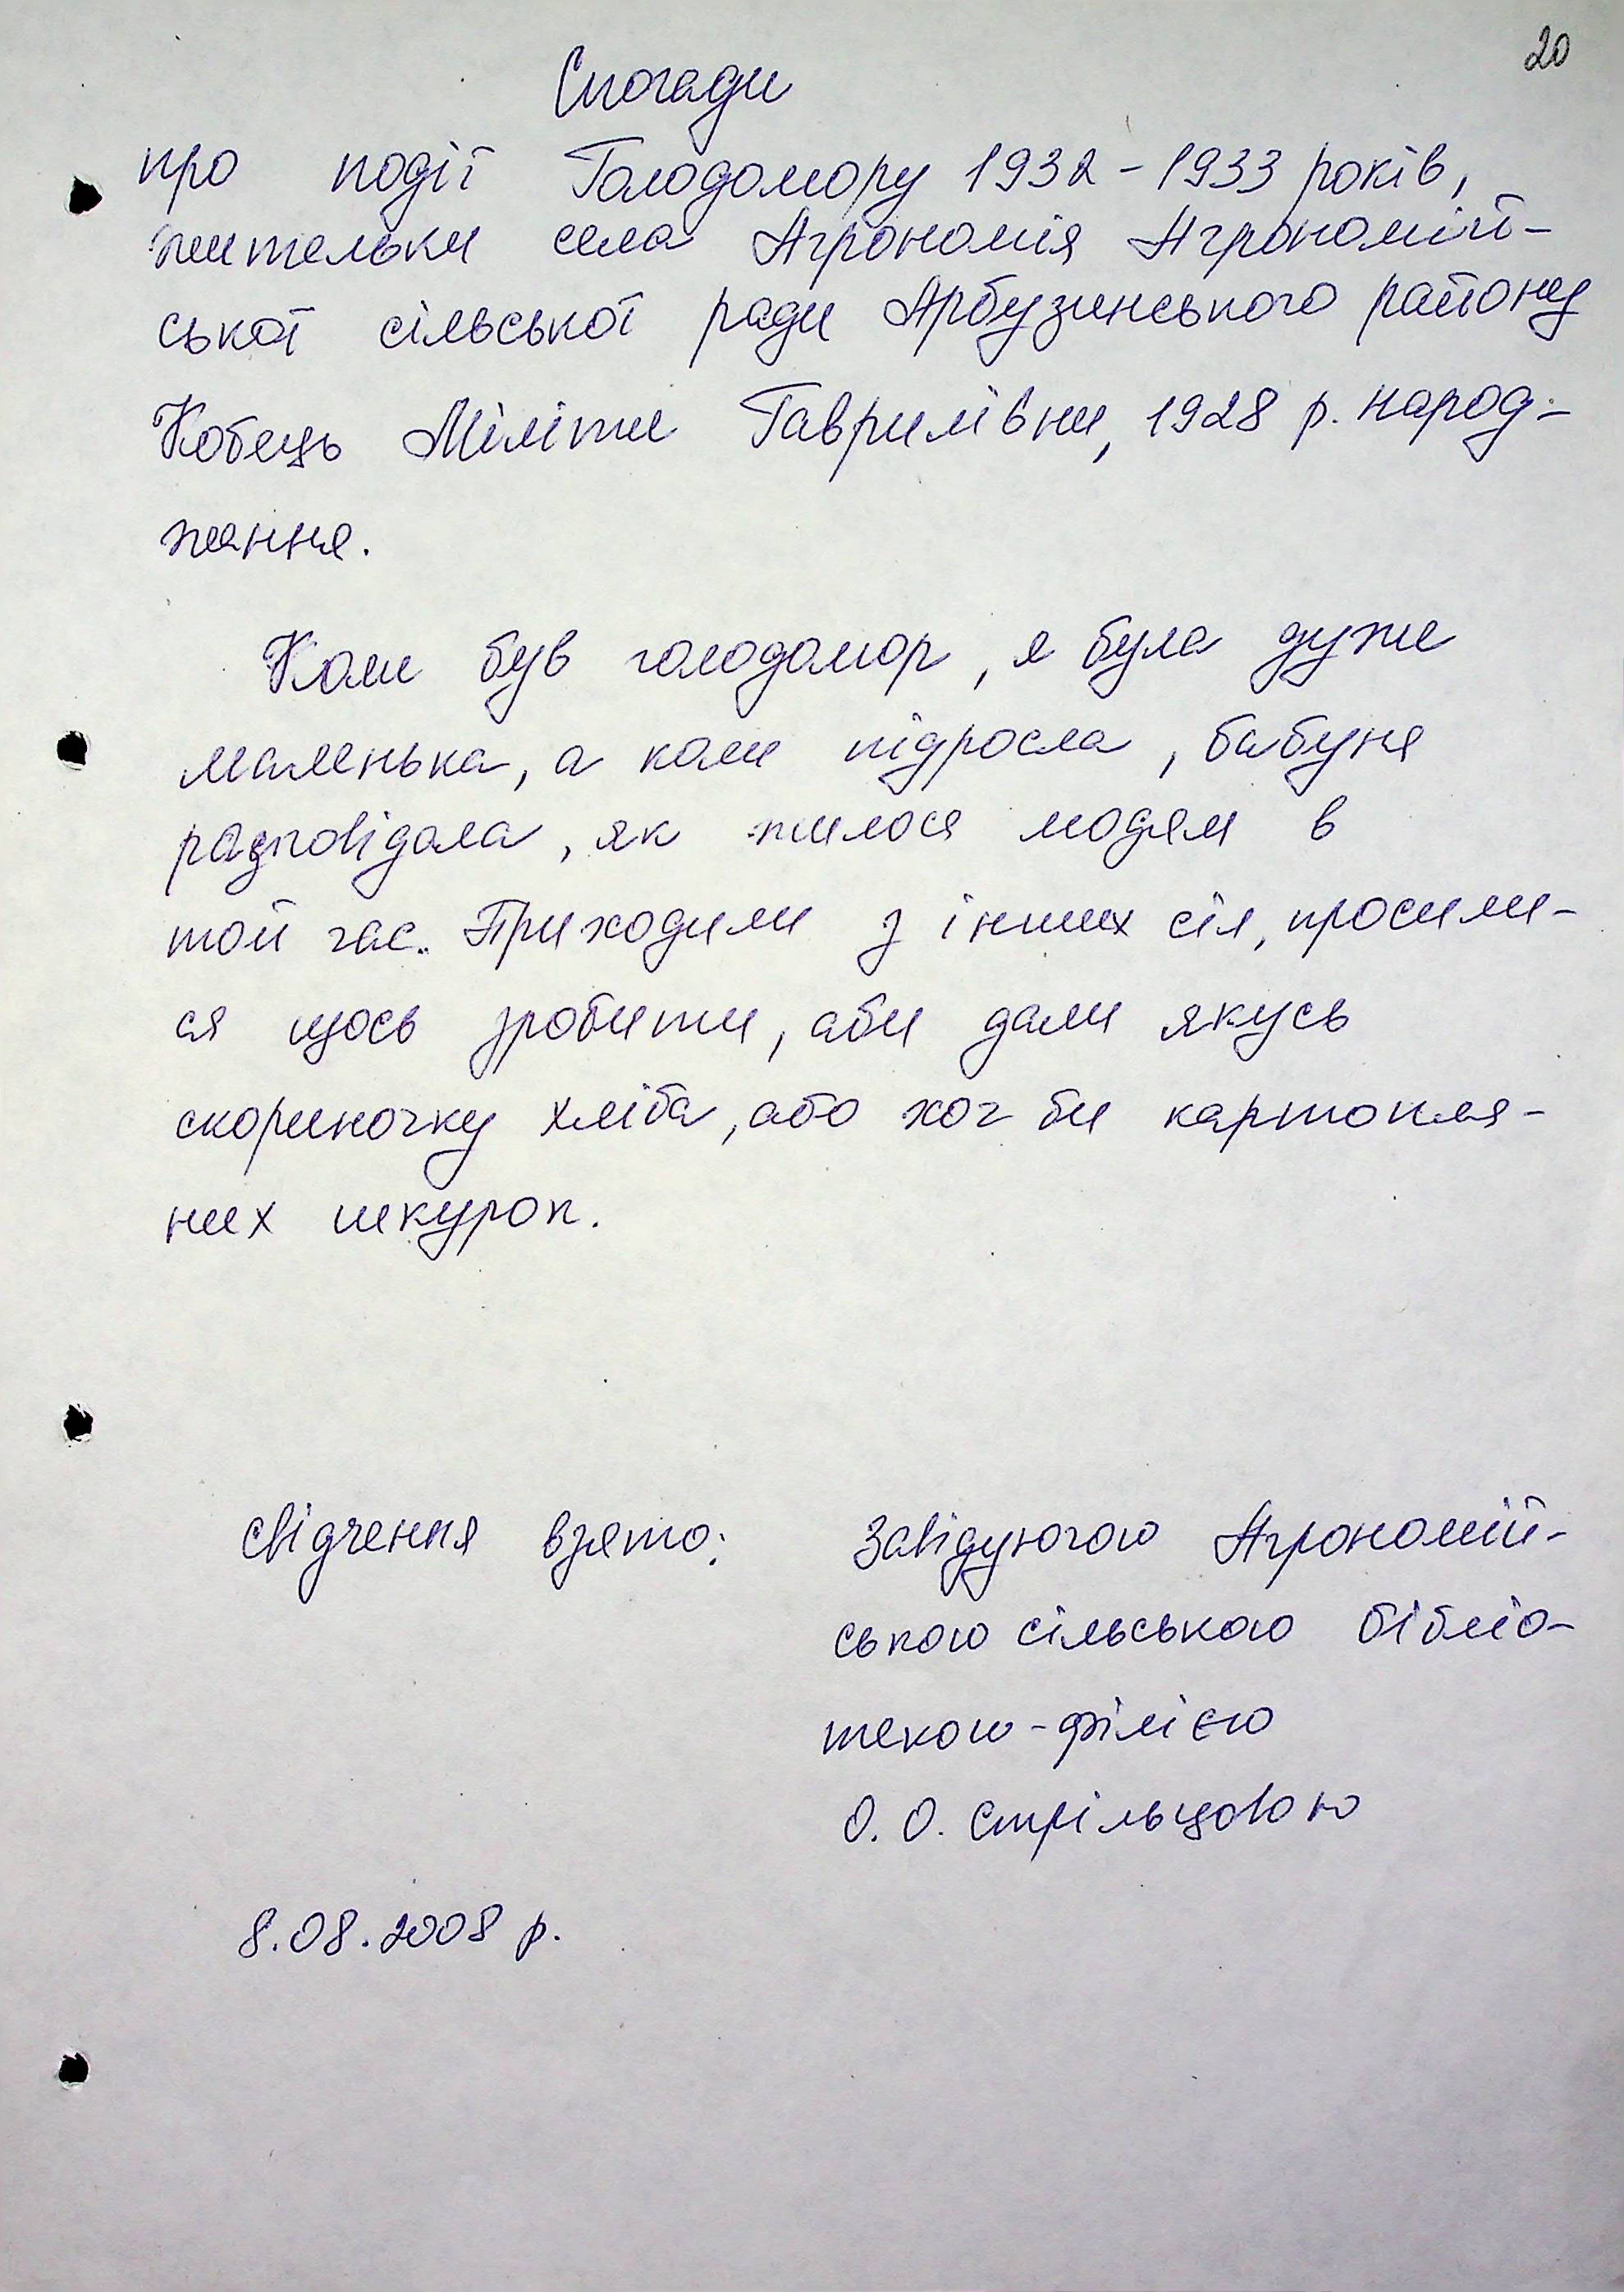 20
Спогади
про події Голодомору 1932-1933 років,
жительки села Агрономія Агрономій-
ської сільської ради Арбузинського району
Кобець Міліти Гаврилівни, 1928 р. народ-
ження.
Коли був голодомор, я була дуже
маленька, а коли підросла, бабуня
розповідала, як жилося людям в
той час. Приходили з інших сіл, просили-
ся щось зробити, аби дали якусь
скориночку хліба, або хоч би картопля-
них шкурок.
Свідчення взято: Завідуючою Агрономій-
ською сільською бібліо-
текою-філією
О. О. Стрільцовою
8.08.2008 р.